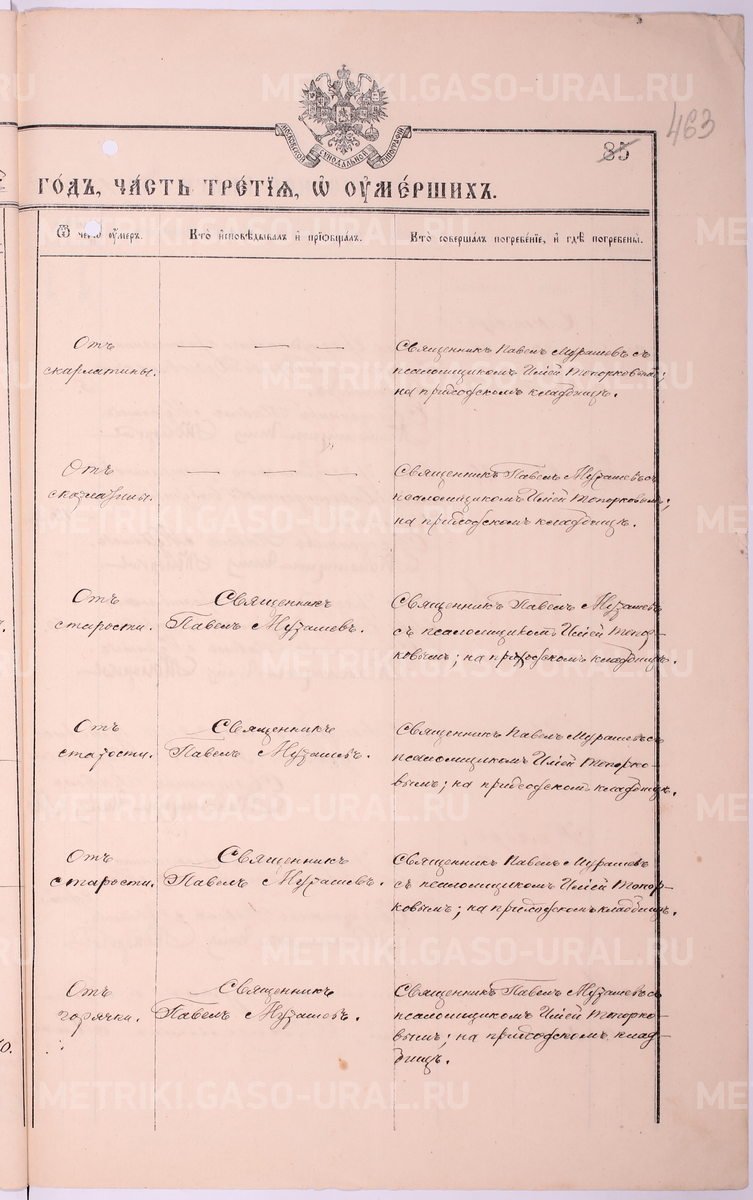 METRIKI.GASO-URAL.RU
463
85
МОСКОВСКОЙ СИНОДАЛЬНОЙ ТИПОГРАФІИ
ГОДЪ, ЧАСТЬ ТРЕТІЯ, Ѡ ОУМЕРШИХЪ.
Ѿ чегѡ оумеръ.
Кто исповѣдывалъ и пріѡбщалъ.
Кто совершалъ погребеніе, и гдѣ погребены.
Отъ
скарлатины.
— — —
Священникъ Павелъ Мурашевъ съ
псаломщикомъ Илiей Топорковымъ;
на приходскомъ кладбищѣ.
Отъ
скарлатины.
— — —
Священникъ Павелъ Мурашевъ съ
псаломщикомъ Илiей Топорковымъ;
на приходскомъ кладбищѣ.
Отъ
старости.
Священникъ
Павелъ Мурашевъ.
Священникъ Павелъ Мурашевъ
съ псаломщикомъ Илiей Топор-
ковымъ; на приходскомъ кладбищѣ.
Отъ
старости.
Священникъ
Павелъ Мурашевъ.
Священникъ Павелъ Мурашевъ съ
псаломщикомъ Илiей Топорко-
вымъ; на приходскомъ кладбищѣ.
Отъ
старости.
Священникъ
Павелъ Мурашевъ.
Священникъ Павелъ Мурашевъ
съ псаломщикомъ Илiей Топор-
ковымъ; на приходскомъ кладбищѣ.
Отъ
горячки.
Священникъ
Павелъ Мурашевъ.
Священникъ Павелъ Мурашевъ съ
псаломщикомъ Илiей Топорко-
вымъ; на приходскомъ клад-
бищѣ.